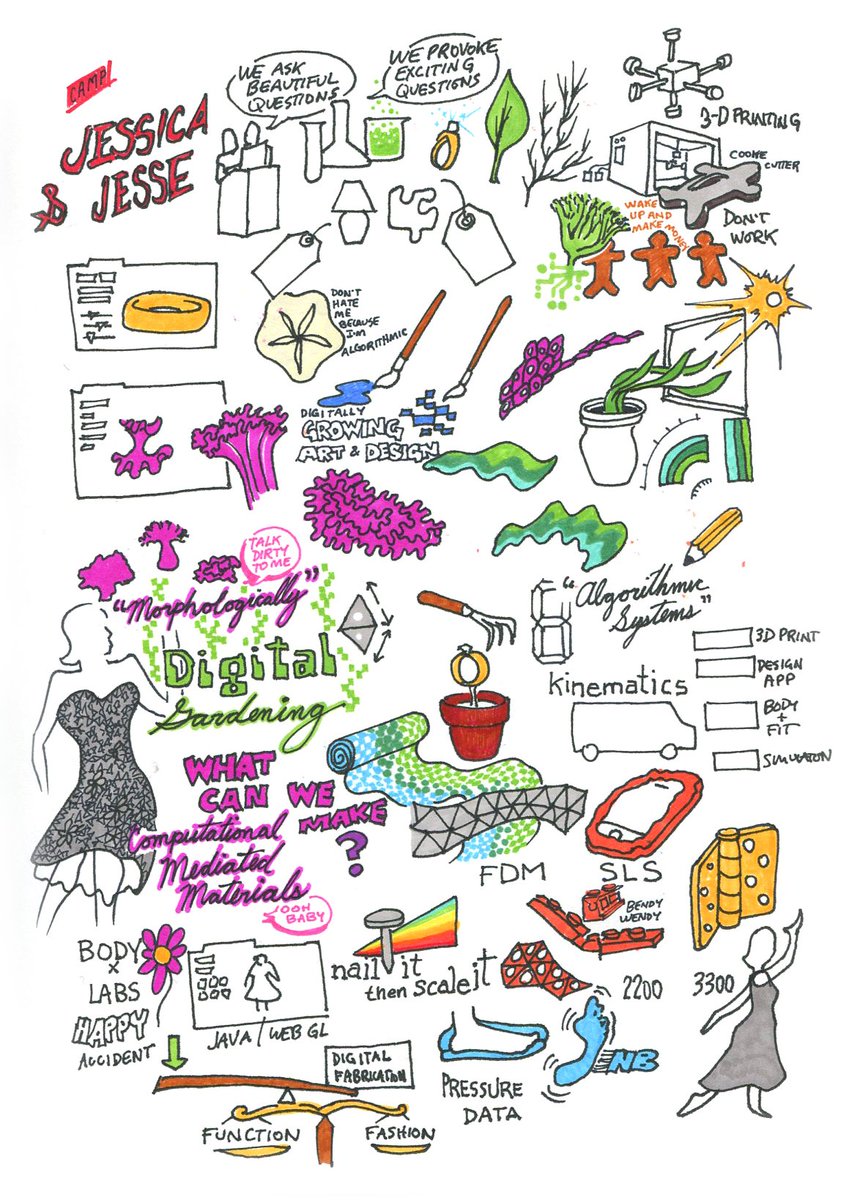 CAMP
JESSICA
& JESSE
WE ASK
BEAUTIFUL
QUESTIONS
WE PROVOKE
EXCITING
QUESTIONS
3-D PRINTING
COOKIE
CUTTER
DON'T
WORK
WAKE
UP AND
MAKE MONEY
DON'T
HATE
ME
BECAUSE
I'M
ALGORITHMIC
DIGITALLY
GROWING
ART & DESIGN
TALK
DIRTY
TO ME
"Morphologically"
Digital
Gardening
"Algorithmic
Systems"
kinematics
3D PRINT
DESIGN
APP
BODY
+
FIT
SIMULATION
WHAT
CAN WE
MAKE
?
Computational
Mediated
Materials
OOH
BABY
FDM
SLS
BENDY
WENDY
BODY
X
LABS
HAPPY
ACCIDENT
JAVA / WEB GL
nail it
then scale it
2200
3300
PRESSURE
DATA
NB
DIGITAL
FABRICATION
FUNCTION
FASHION